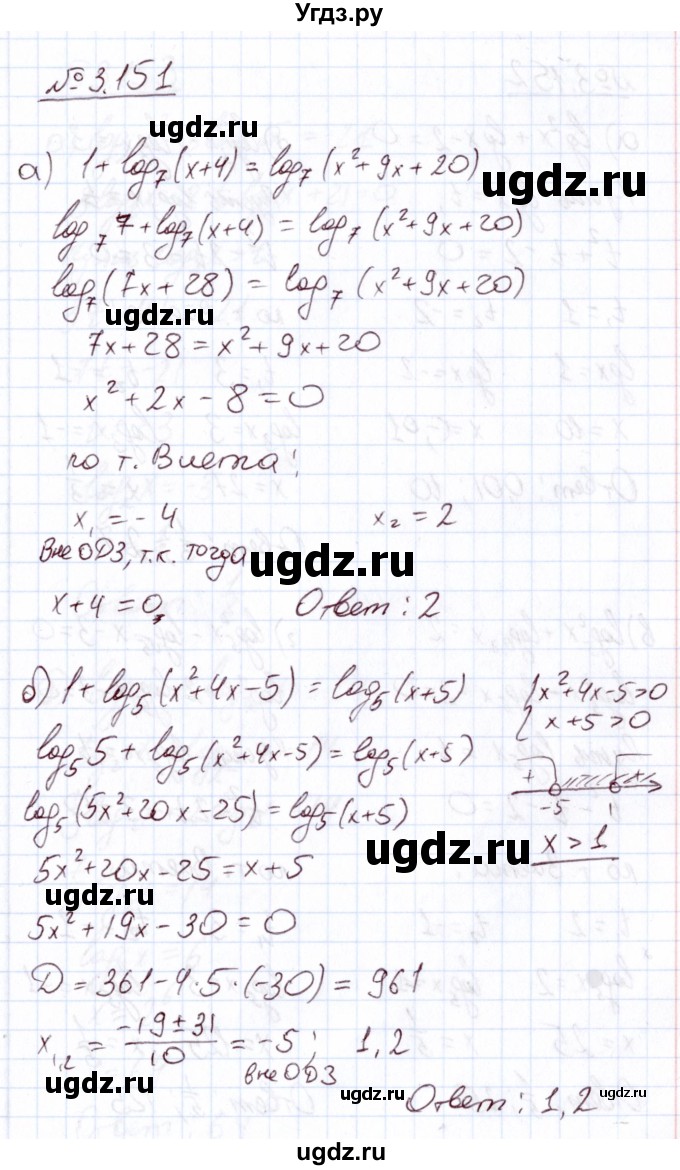 Угдз.ру
№3.151
ugdz.ru
а) 1+log₇(x+4)=log₇(x²+9x+20)
ugdz.ru
log₇7+log₇(x+4)=log₇(x²+9x+20)
log₇(7x+28)=log₇(x²+9x+20)
ugdz.ru
7x+28=x²+9x+20
x²+2x-8=0
по т. Виета:
x₁=-4 x₂=2
Вне ОДЗ, т.к. тогда
ugdz.ru
x+4=0, Ответ: 2
б) 1+log₅(x²+4x-5)=log₅(x+5) { x²+4x-5>0
x+5>0
log₅5+log₅(x²+4x-5)=log₅(x+5)
+ +
-5 1
log₅(5x²+20x-25)=log₅(x+5)
ugdz.ru
x>1
5x²+20x-25=x+5
ugdz.ru
5x²+19x-30=0
D=361-4·5·(-30)=961
x₁,₂=(-19±31)/10=-5; 1,2
вне ОДЗ
ugdz.ru
ugdz.ru
Ответ: 1,2
ugdz.ru